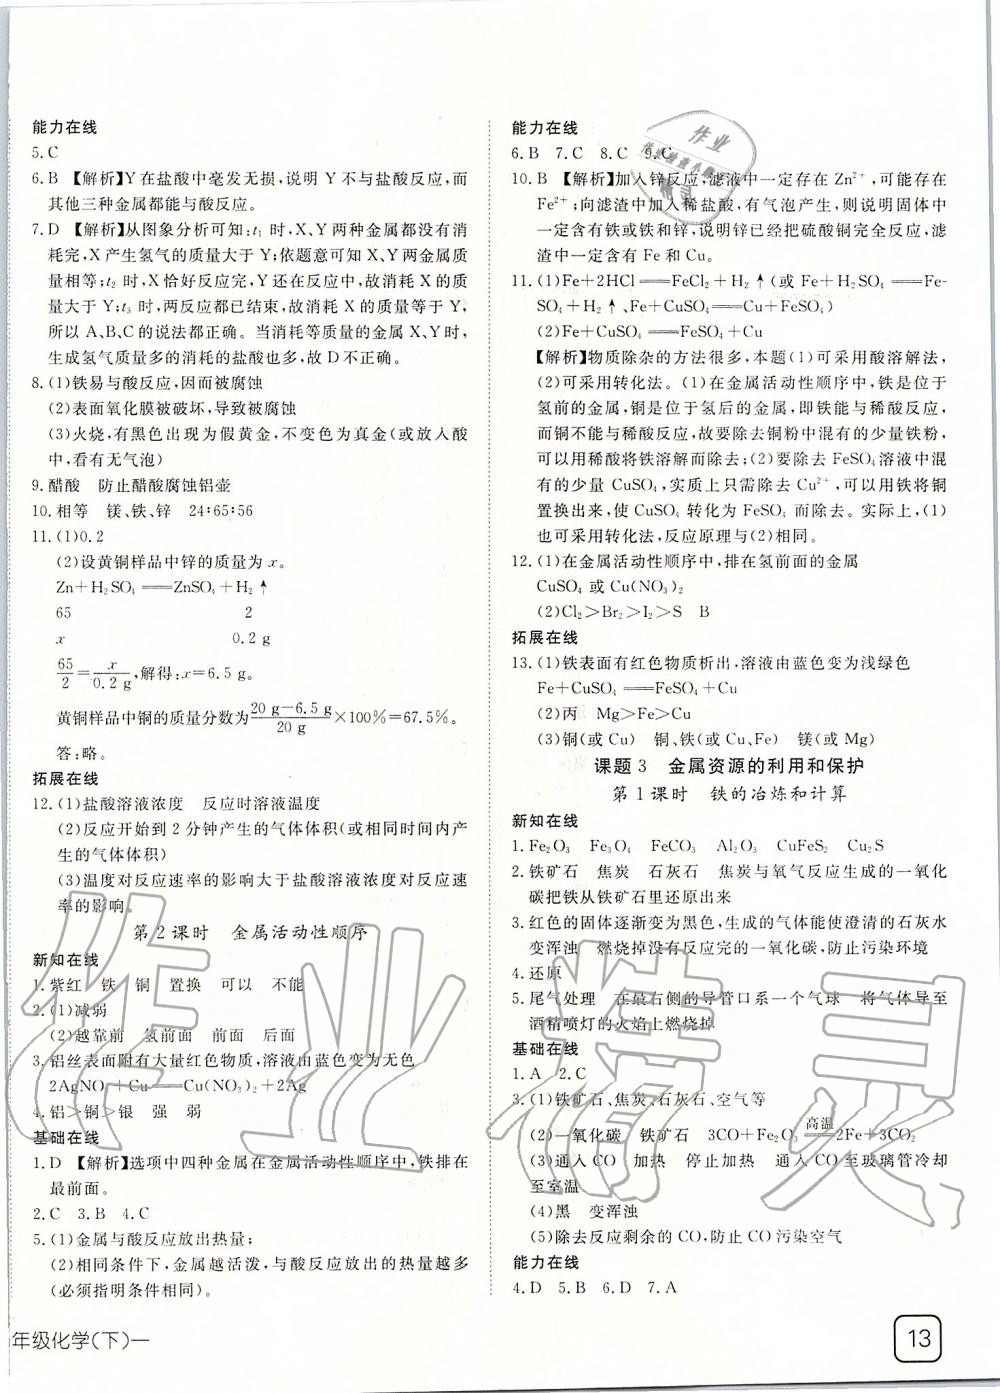 能力在线
5.C
6.B 【解析】Y在盐酸中毫发无损,说明 Y 不与盐酸反应,而
其他三种金属都能与酸反应。
7.D 【解析】从图象分析可知:t₁ 时,X、Y 两种金属都没有
耗完,X 产生氢气的质量大于 Y;依题意可知 X、Y 两金属质
量相等;t₂时,X恰好反应完,Y 还在反应中,故消耗 X 的质
量大于 Y;t₃ 时,两反应都已结束,故消耗 X 的质量等于 Y,
所以 A、B、C 的说法都正确。当消耗等质量的金属 X、Y 时,
生成氢气质量多的消耗的盐酸也多,故 D 不正确。
8.(1)铁易与酸反应,因而被腐蚀
(2)表面氧化膜被破坏,导致被腐蚀
(3)火烧,有黑色出现为假黄金,不变色为真金(或放入酸
中,看有无气泡)
9.醋酸 防止醋酸腐蚀铝壶
10.相等 镁、铁、锌 24∶65∶56
11.(1)0.2
(2)设黄铜样品中锌的质量为 x。
Zn+H₂SO₄══ZnSO₄+H₂↑
65 2
x 0.2 g
65/2=x/0.2 g,解得:x=6.5 g
黄铜样品中铜的质量分数为(20 g−6.5 g)/20 g×100%=67.5%。
答:略。
拓展在线
12.(1)盐酸溶液浓度 反应时溶液温度
(2)反应开始到 2 分钟产生的气体体积(或相同时间内产
生的气体体积)
(3)温度对反应速率的影响大于盐酸溶液浓度对反应速
率的影响。
第 2 课时 金属活动性顺序
新知在线
1.紫红 铁 铜 置换 可以 不能
2.(1)减弱
(2)越靠前 氢前面 前面 后面
3.铝丝表面附有大量红色物质,溶液由蓝色变为无色
2AgNO₃+Cu══Cu(NO₃)₂+2Ag
4.铝>铜>银 强 弱
基础在线
1.D 【解析】选项中四种金属在金属活动性顺序中,铁排在
最前面。
2.C 3.B 4.C
5.(1)金属与酸反应放出热量;
(2)相同条件下,金属越活泼,与酸反应放出的热量越多
(必须指明条件相同)。
年级化学(下)—
能力在线
6.B 7.C 8.C 9.C
10.B 【解析】加入锌反应,滤液中一定存在 Zn²⁺,可能存在
Fe²⁺;向滤渣中加入稀盐酸,有气泡产生,则说明固体中
一定含有铁或铁和锌,说明锌已经把硫酸铜完全反应,滤
渣中一定含有 Fe 和 Cu。
11.(1)Fe+2HCl══FeCl₂+H₂↑(或 Fe+H₂SO₄══Fe-
SO₄+H₂↑、Fe+CuSO₄══Cu+FeSO₄)
(2)Fe+CuSO₄══FeSO₄+Cu
【解析】物质除杂的方法很多,本题(1)可采用酸溶解法,
(2)可采用转化法。(1)在金属活动性顺序中,铁是位于
氢前的金属,铜是位于氢后的金属,即铁能与稀酸反应,
而铜不能与稀酸反应,故要除去铜粉中混有的少量铁粉,
可以用稀酸将铁溶解而除去;(2)要除去 FeSO₄ 溶液中混
有的少量 CuSO₄,实质上只需除去 Cu²⁺,可以用铁将铜
置换出来,使 CuSO₄ 转化为 FeSO₄ 而除去。实际上,(1)
也可采用转化法,反应原理与(2)相同。
12.(1)在金属活动性顺序中,排在氢前面的金属
CuSO₄ 或 Cu(NO₃)₂
(2)Cl₂>Br₂>I₂>S B
拓展在线
13.(1)铁表面有红色物质析出,溶液由蓝色变为浅绿色
Fe+CuSO₄══FeSO₄+Cu
(2)丙 Mg>Fe>Cu
(3)铜(或 Cu) 铜、铁(或 Cu、Fe) 镁(或 Mg)
课题 3 金属资源的利用和保护
第 1 课时 铁的冶炼和计算
新知在线
1.Fe₂O₃ Fe₃O₄ FeCO₃ Al₂O₃ CuFeS₂ Cu₂S
2.铁矿石 焦炭 石灰石 焦炭与氧气反应生成的一氧化
碳把铁从铁矿石里还原出来
3.红色的固体逐渐变为黑色,生成的气体能使澄清的石灰水
变浑浊 燃烧掉没有反应完的一氧化碳,防止污染环境
4.还原
5.尾气处理 在最右侧的导管口系一个气球 将气体导至
酒精喷灯的火焰上燃烧掉
基础在线
1.A 2.C
3.(1)铁矿石、焦炭、石灰石、空气等
(2)一氧化碳 铁矿石 3CO+Fe₂O₃ 高温══2Fe+3CO₂
(3)通入 CO 加热 停止加热 通入 CO 至玻璃管冷却
至室温
(4)黑 变浑浊
(5)除去反应剩余的 CO,防止 CO 污染空气
能力在线
4.D 5.B 6.D 7.A
13
作业精灵